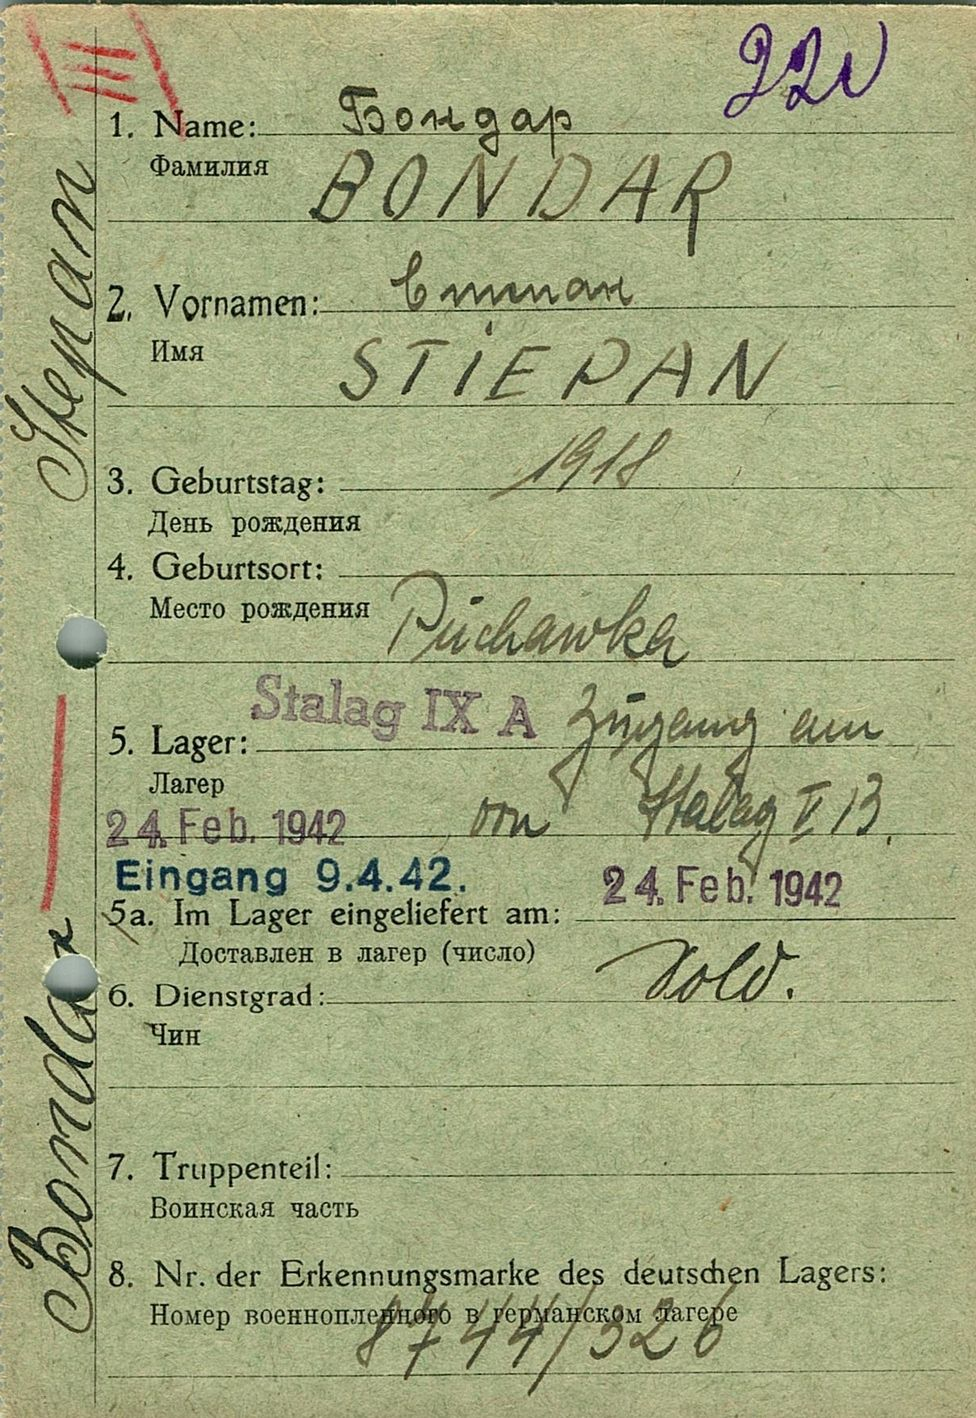 1. Name: Бондар
Фамилия
BONDAR
2. Vornamen: Степан
Имя
STIEPAN
3. Geburtstag: 1918
День рождения
4. Geburtsort:
Место рождения Puchawka
Stalag IX A Zugang am
5. Lager:
Лагер
24. Feb. 1942 von Stalag II B.
Eingang 9.4.42. 24. Feb. 1942
5a. Im Lager eingeliefert am:
Доставлен в лагер (число)
6. Dienstgrad: Sold.
Чин
7. Truppenteil:
Воинская часть
8. Nr. der Erkennungsmarke des deutschen Lagers:
Номер военнопленного в германском лагере
8744/326
Bondar Stepan
III